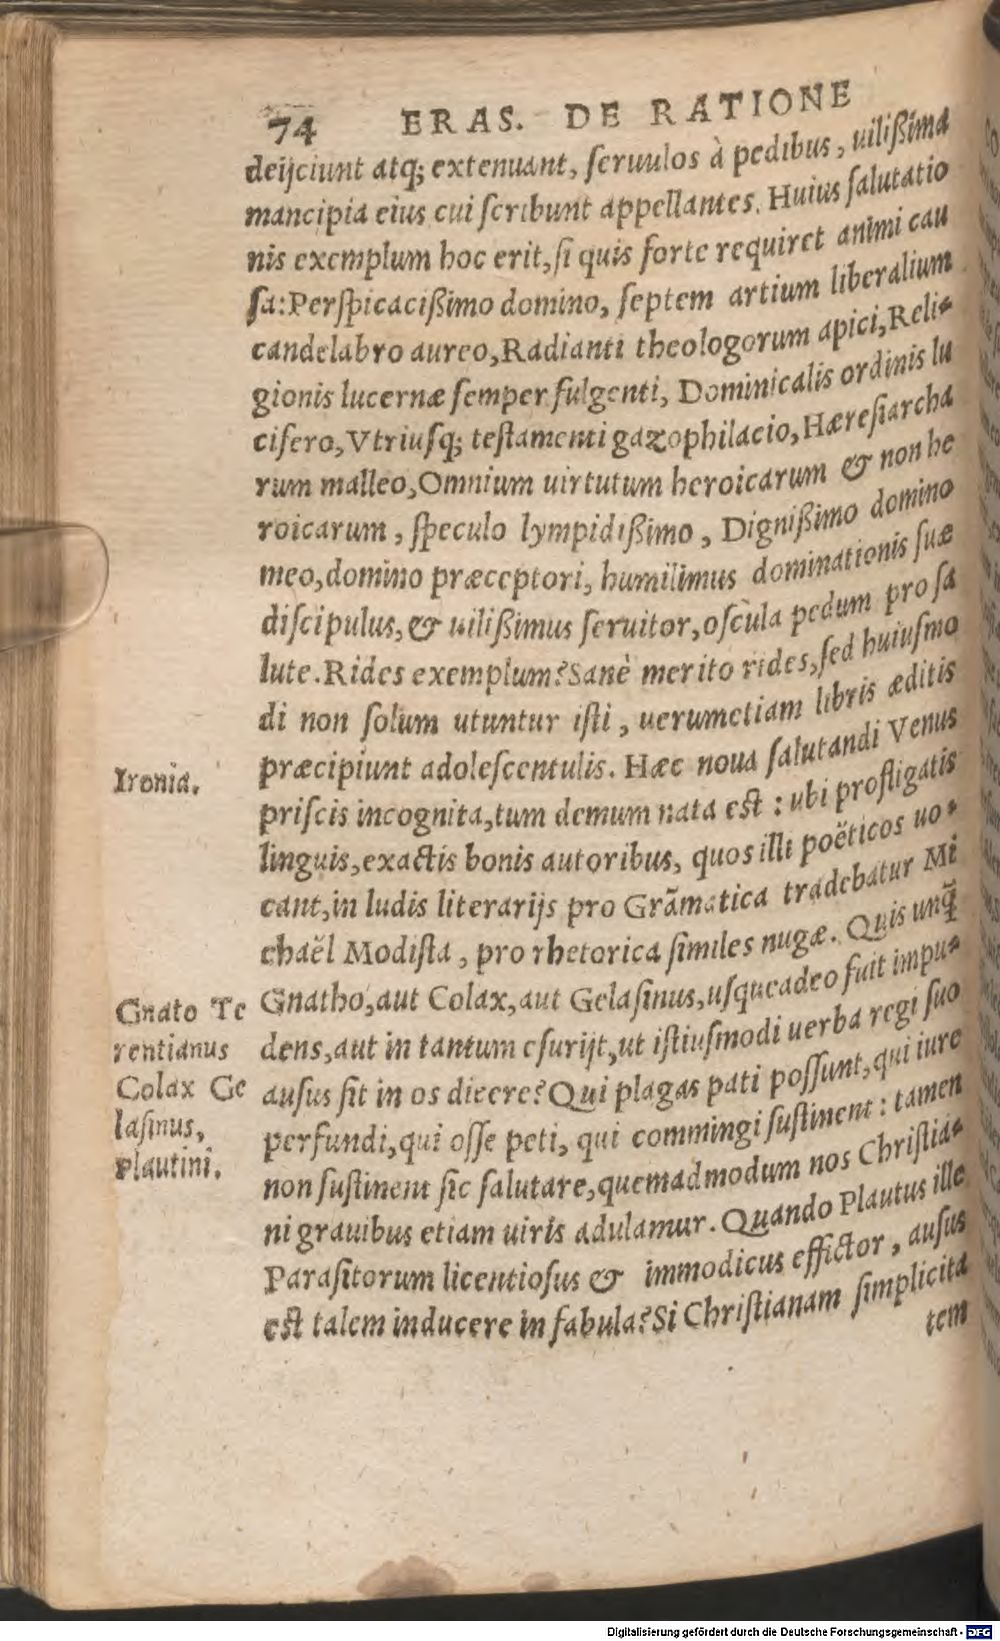 74 ERAS. DE RATIONE
deijciunt atq; extenuant, ſeruulos à pedibus, uilißima
mancipia eius cui ſcribunt appellantes. Huius ſalutatio
nis exemplum hoc erit, ſi quis forte requiret animi cau
ſa: Perſpicacißimo domino, ſeptem artium liberalium
candelabro aureo, Radianti theologorum apici, Reli-
gionis lucernæ ſemper fulgenti, Dominicalis ordinis lu
cifero, Vtriuſq; teſtamenti gazophilacio, Hæreſiarcha
rum malleo, Omnium uirtutum heroicarum & non he
roicarum, ſpeculo lympidißimo, Dignißimo domino
meo, domino præceptori, humilimus dominationis ſuæ
diſcipulus, & uilißimus ſeruitor, oſcula pedum pro ſa
lute. Rides exemplum? Sanè merito rides, ſed huiuſmo
di non ſolum utuntur iſti, uerumetiam libris æditis
præcipiunt adoleſcentulis. Hæc noua ſalutandi Venus
Ironia.
priſcis incognita, tum demum nata eſt: ubi profligatis
linguis, exactis bonis autoribus, quos illi poëticos uo-
cant, in ludis literarijs pro Grãmatica tradebatur Mi
chaël Modiſta, pro rhetorica ſimiles nugæ. Quis unq̃
Gnatho, aut Colax, aut Gelaſinus, uſqueadeo fuit impu-
dens, aut in tantum eſurijt, ut iſtiuſmodi uerba regi ſuo
auſus ſit in os dicere? Qui plagas pati poſſunt, qui iure
perfundi, qui oſſe peti, qui commingi ſuſtinent: tamen
non ſuſtinent ſic ſalutare, quemadmodum nos Chriſtia-
ni grauibus etiam uiris adulamur. Quando Plautus ille
Paraſitorum licentioſus & immodicus effictor, auſus
eſt talem inducere in fabula? Si Chriſtianam ſimplicita
tem
Gnato Te
rentianus
Colax Ge
laſinus,
Plautini.
Digitalisierung gefördert durch die Deutsche Forschungsgemeinschaft - DFG